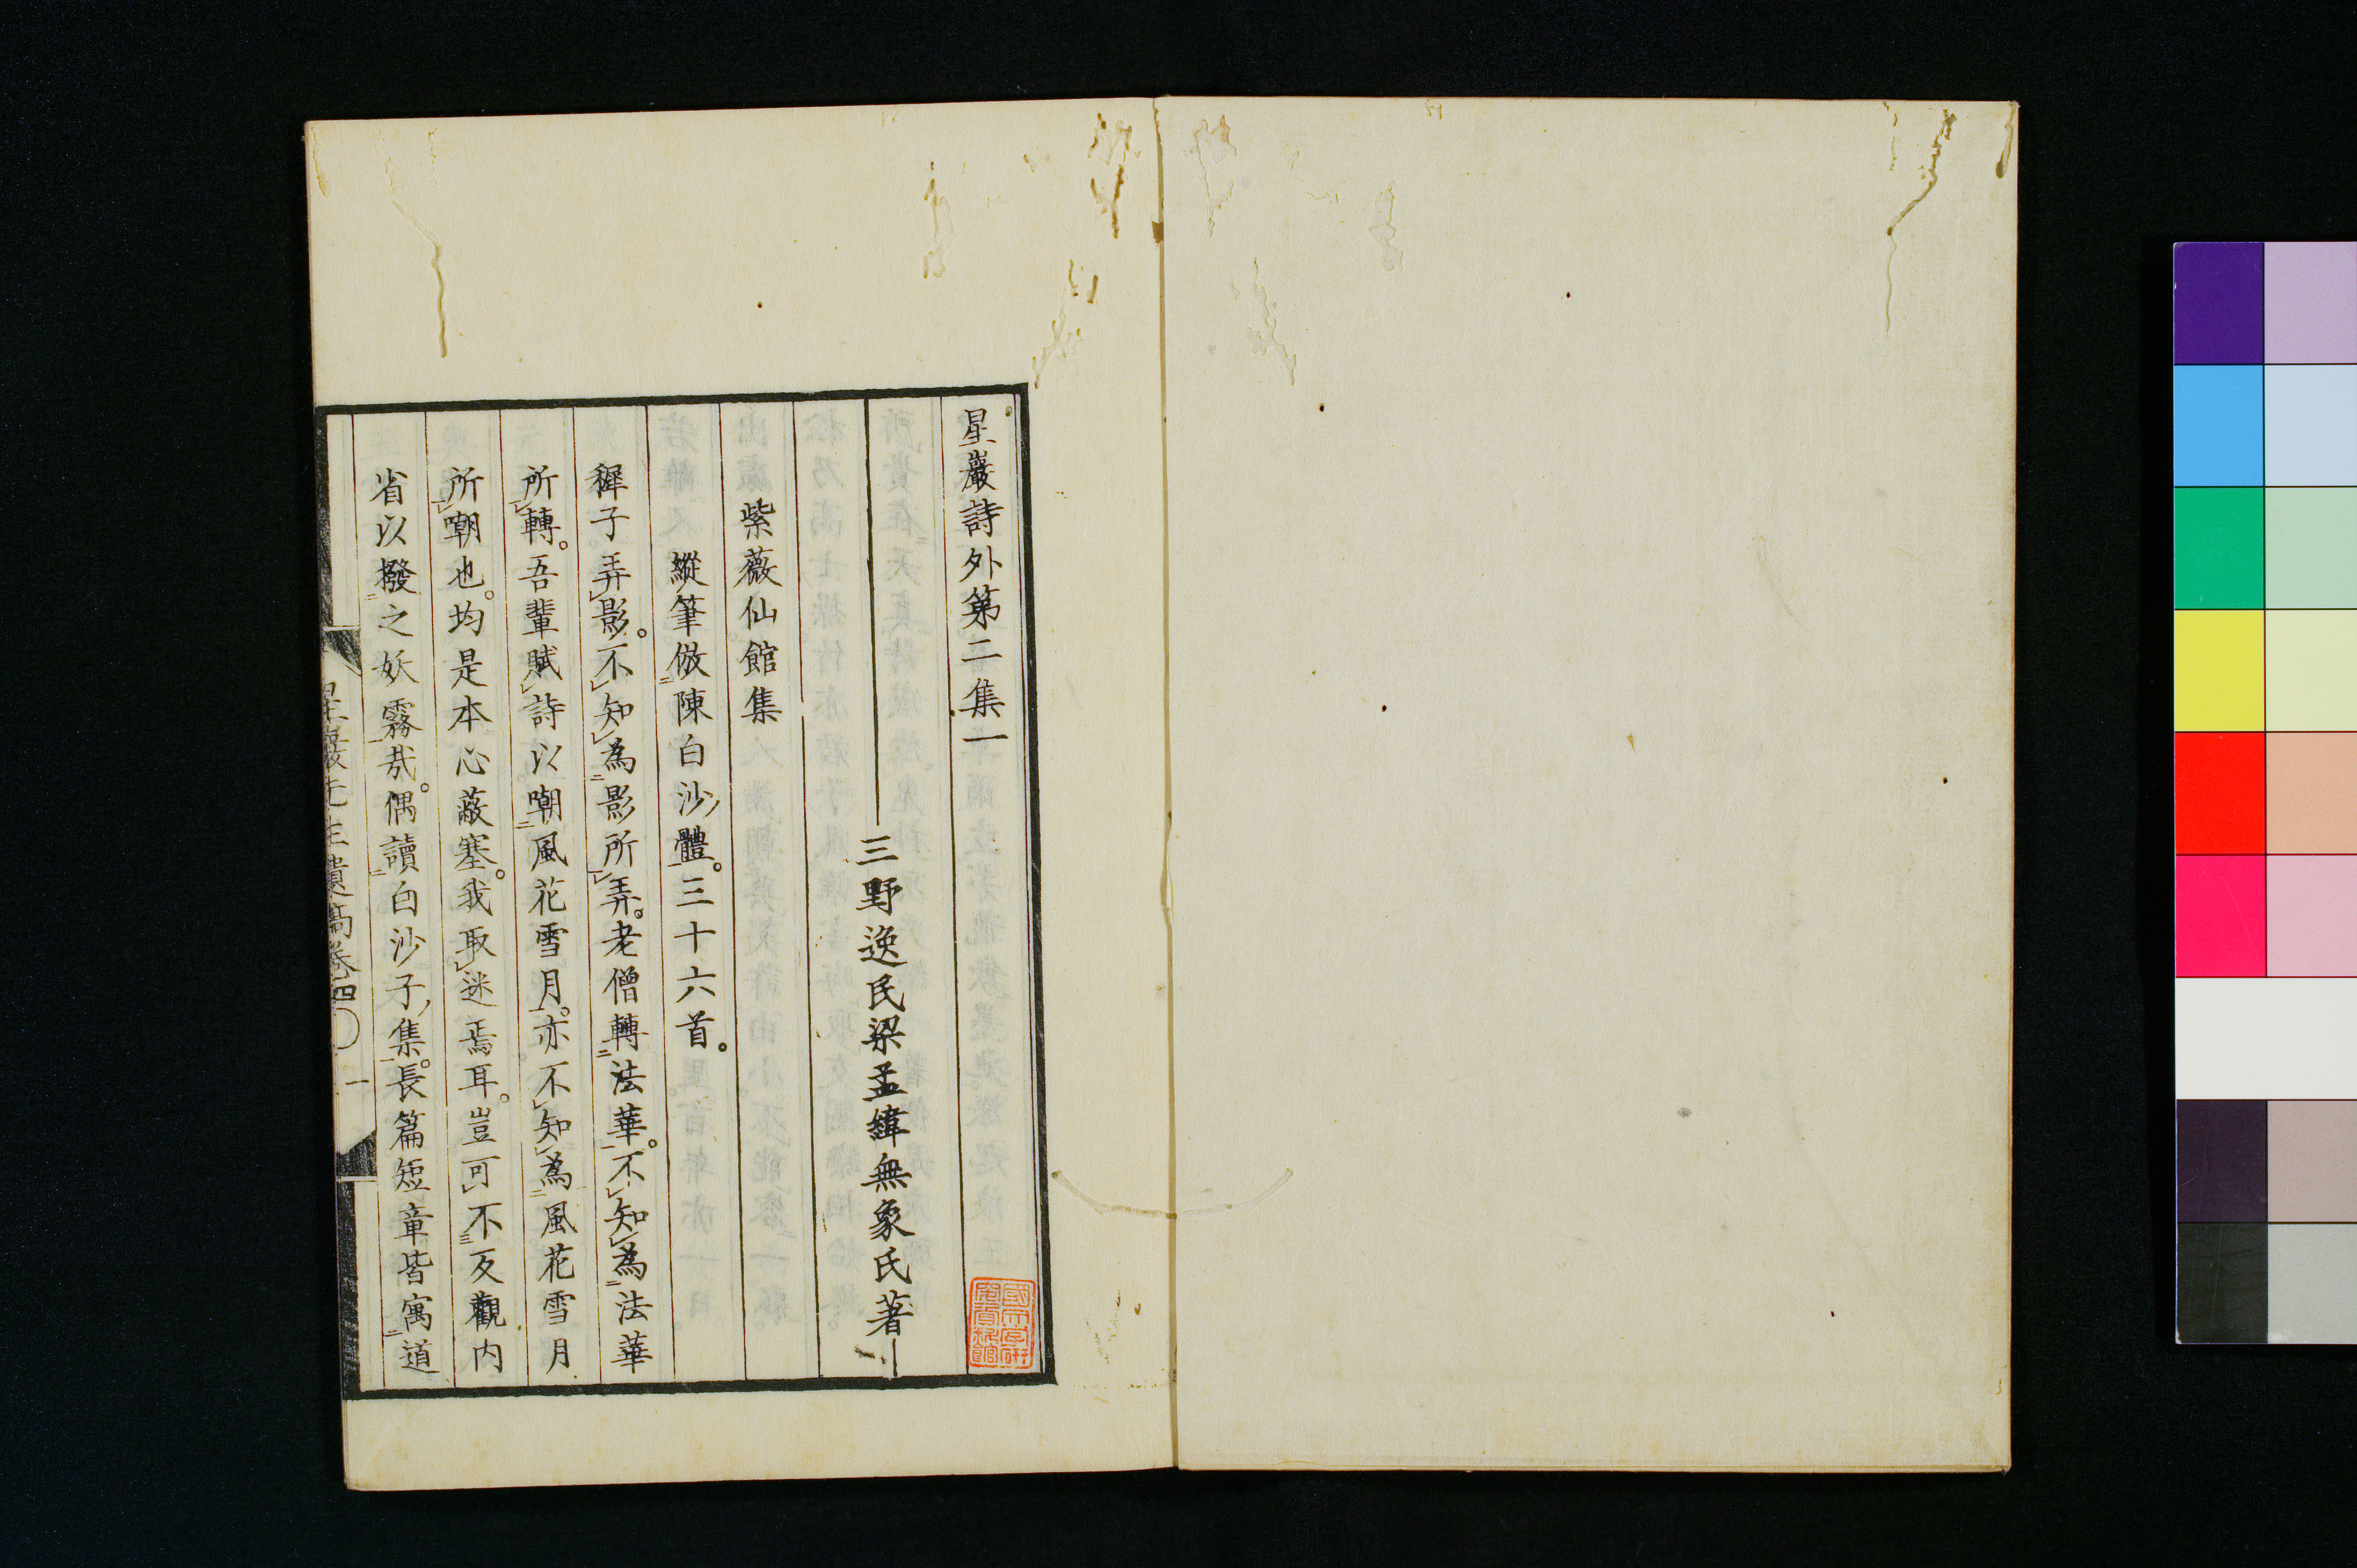 星巖詩外第二集一
三野逸民梁孟緯無象氏著
紫薇仙館集
縱筆倣陳白沙體。三十六首。
穉子弄影。不知為影所弄。老僧轉法華。不知為法華
所轉。吾輩賦詩以嘲風花雪月。亦不知為風花雪月
所嘲也。均是本心蔽塞。我取迷焉耳。豈可不反觀内
省以撥之妖霧哉。偶讀白沙子集。長篇短章皆寓道
星巖先生遺稿卷四 一